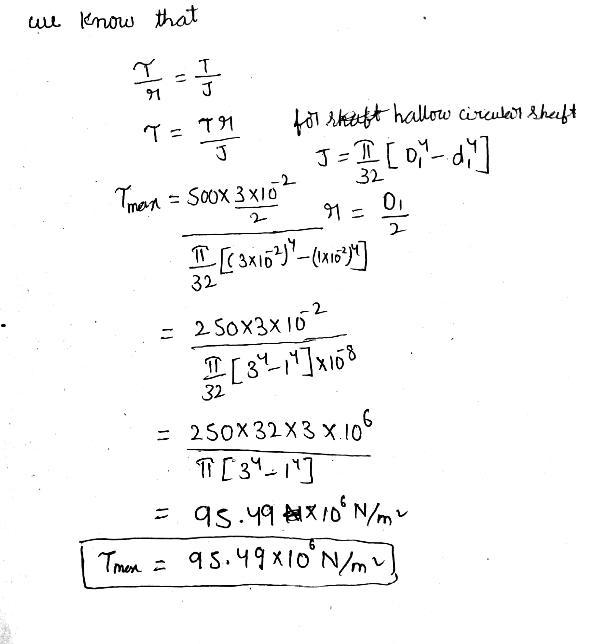 we know that
τ/r = T/J
τ = Tr/J
for shaft hallow circular shaft
J = π/32 [D₁⁴ - d₁⁴]
r = D₁/2
τmax = 500 × (3×10⁻²/2) / (π/32 [(3×10⁻²)⁴ - (1×10⁻²)⁴])
= 250×3×10⁻² / (π/32 [3⁴-1⁴]×10⁻⁸)
= 250×32×3×10⁶ / (π[3⁴-1⁴])
= 95.49 ×10⁶ N/m²
τmax = 95.49×10⁶ N/m²